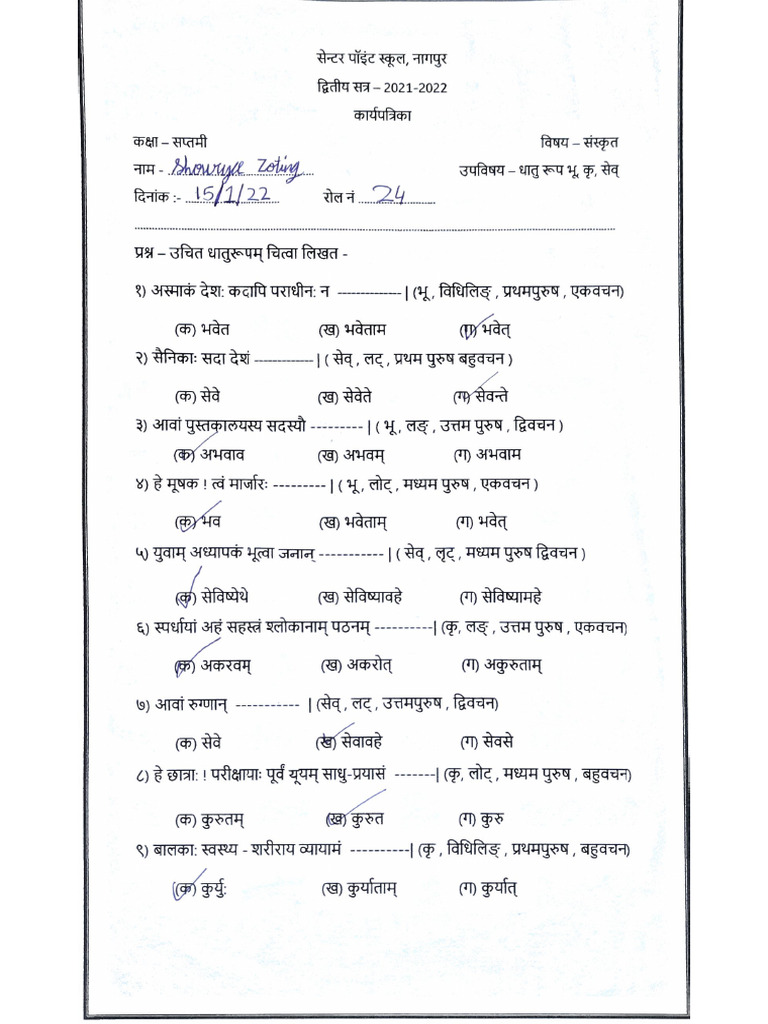 सेन्टर पॉइंट स्कूल, नागपुर
द्वितीय सत्र – 2021-2022
कार्यपत्रिका
कक्षा – सप्तमी विषय – संस्कृत
नाम - Showrya Zoting उपविषय – धातु रूप भू, कृ, सेव्
दिनांक :- 15/1/22 रोल नं 24
प्रश्न – उचित धातुरूपम् चित्वा लिखत -
१) अस्माकं देश: कदापि पराधीन: न --------------| (भू , विधिलिङ् , प्रथमपुरुष , एकवचन)
(क) भवेत (ख) भवेताम (ग) भवेत्
२) सैनिकाः सदा देशं -------------| ( सेव् , लट् , प्रथम पुरुष बहुवचन )
(क) सेवे (ख) सेवेते (ग) सेवन्ते
३) आवां पुस्तकालयस्य सदस्यौ ---------| ( भू , लङ् , उत्तम पुरुष , द्विवचन )
(क) अभवाव (ख) अभवम् (ग) अभवाम
४) हे मूषक ! त्वं मार्जारः ---------| ( भू , लोट् , मध्यम पुरुष , एकवचन )
(क) भव (ख) भवेताम् (ग) भवेत्
५) युवाम् अध्यापकं भूत्वा जनान् -----------| ( सेव् , लृट् , मध्यम पुरुष द्विवचन )
(क) सेविष्येथे (ख) सेविष्यावहे (ग) सेविष्यामहे
६) स्पर्धायां अहं सहस्त्रं श्लोकानाम् पठनम् ----------| (कृ, लङ् , उत्तम पुरुष , एकवचन)
(क) अकरवम् (ख) अकरोत् (ग) अकुरुताम्
७) आवां रुग्णान् ----------- | (सेव् , लट् , उत्तमपुरुष , द्विवचन)
(क) सेवे (ख) सेवावहे (ग) सेवसे
८) हे छात्रा: ! परीक्षायाः पूर्वं यूयम् साधु-प्रयासं -------| (कृ, लोट् , मध्यम पुरुष , बहुवचन)
(क) कुरुतम् (ख) कुरुत (ग) कुरु
९) बालका: स्वस्थ्य - शरीराय व्यायामं ----------| (कृ , विधिलिङ् , प्रथमपुरुष , बहुवचन)
(क) कुर्यु: (ख) कुर्याताम् (ग) कुर्यात्